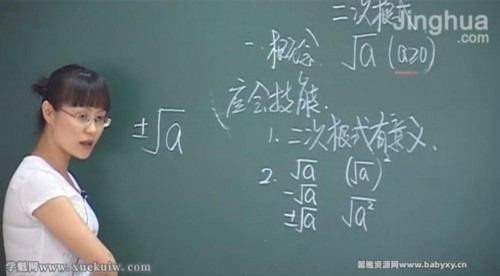 二次根式
Jinghua.com
一.概念: √a (a≥0)
应会技能.
±√a
1. 二次根式有意义、
2. √a (√a)²
-√a
±√a √a²
学魁网www.xuekuiw.com
www.babyxy.cn